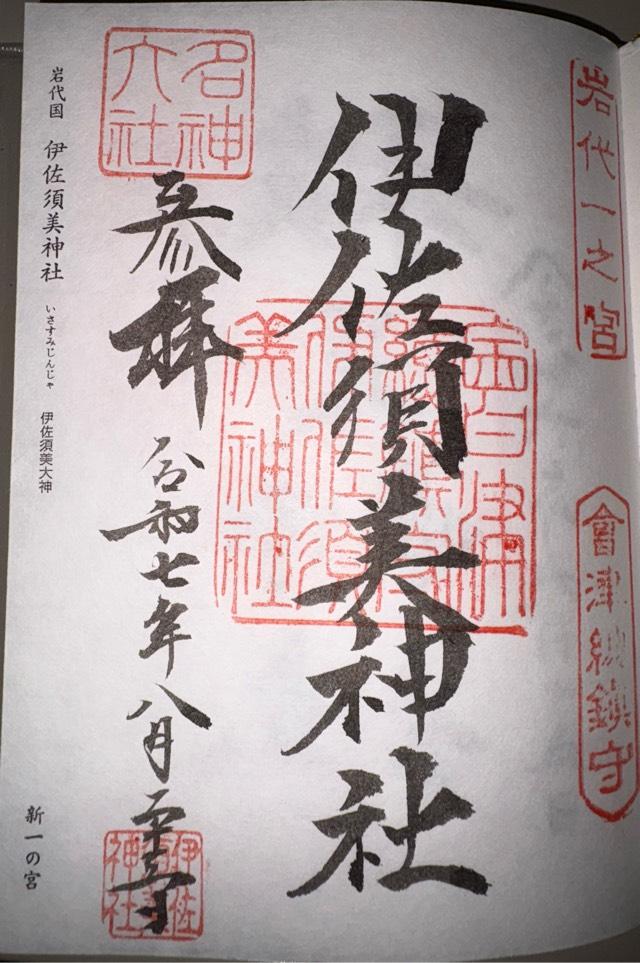 岩代一之宮
會津総鎮守
伊佐須美神社
會津
総鎮守
伊佐須
美神社
名神
大社
参拜
令和七年八月
岩代国 伊佐須美神社 いさすみじんじゃ 伊佐須美大神
新一の宮